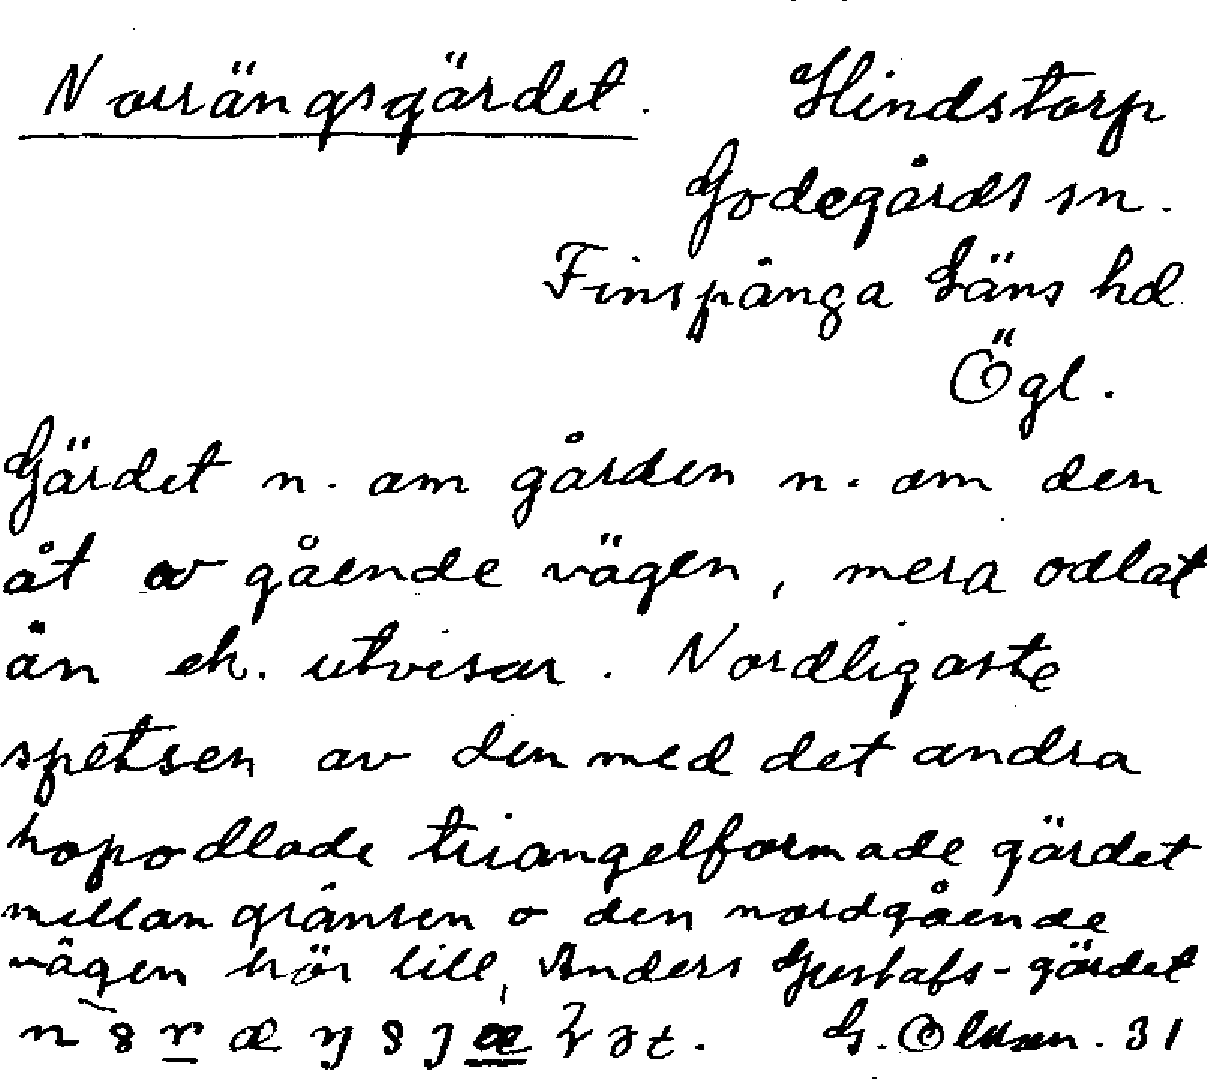 Norrängsgärdet. Hindstorp
Godegårds sn.
Finspånga läns hd
Ögl.
Gärdet n. om gården n. om den
åt av gående vägen, mera odlat
än ek. utvisar. Nordligaste
spetsen av den med det andra
hopodlade triangelformade gärdet
mellan gränsen o den nordgående
vägen hör till Anders Gustafs-gärdet
G. Olsson. 31